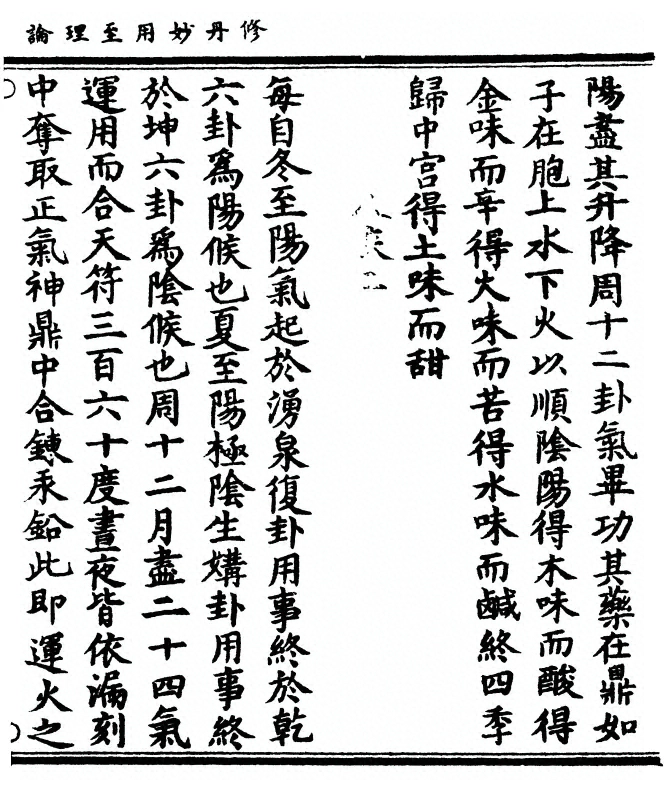 修丹妙用至理論
陽盡其升降周十二卦氣畢功其藥在鼎如
子在胞上水下火以順陰陽得木味而酸得
金味而辛得火味而苦得水味而鹹終四季
歸中宮得土味而甜
每自冬至陽氣起於湧泉復卦用事終於乾
六卦爲陽候也夏至陽極陰生媾卦用事終
於坤六卦爲陰候也周十二月盡二十四氣
運用而合天符三百六十度晝夜皆依漏刻
中奪取正氣神鼎中合鍊汞鉛此即運火之